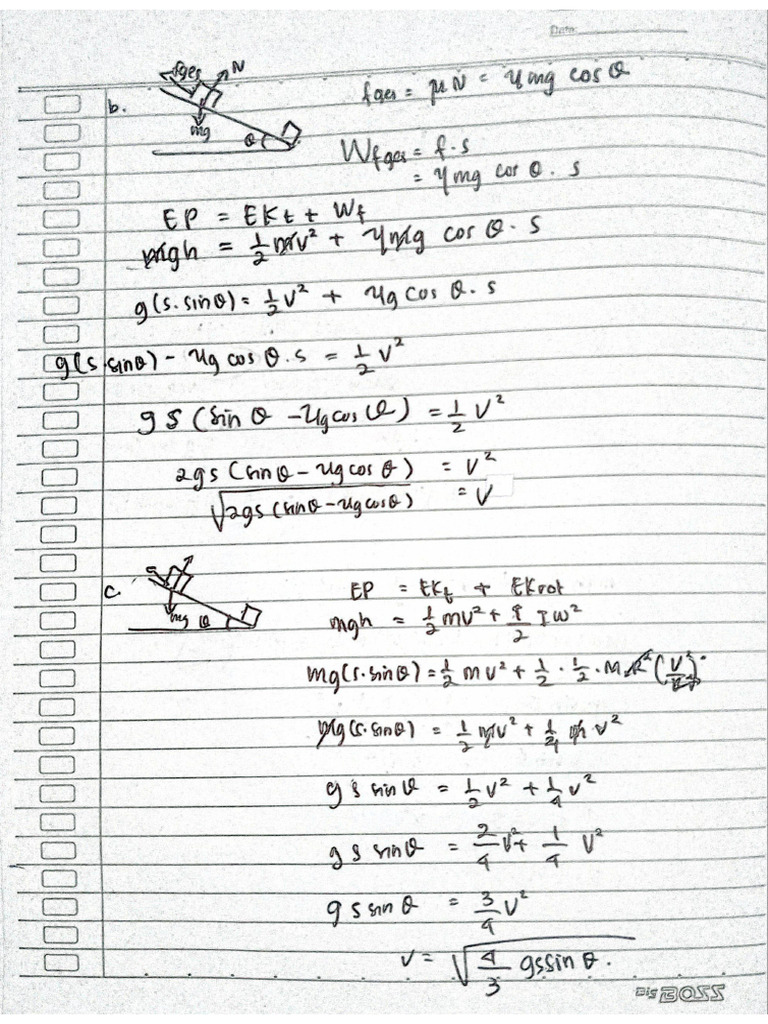 Date:
b.
fges
N
mg
θ
fges = μN = μmg cos θ
Wfges = f.s
= μmg cos θ. s
EP = EKt + Wf
mgh = 1/2 mv² + μmg cos θ. s
g(s.sinθ) = 1/2 v² + μg cos θ. s
g(s.sinθ) - μg cos θ.s = 1/2 v²
gs (sin θ - μg cos θ) = 1/2 v²
2gs (sinθ - μg cos θ) = v²
√2gs (sinθ - μg cosθ) = v
c.
mg
θ
EP = EKt + EKrot
mgh = 1/2 mv² + 1/2 Iω²
mg(s.sinθ) = 1/2 mv² + 1/2 . 1/2 . MR² (v²/R²)
mg(s.sinθ) = 1/2 mv² + 1/4 m v²
g s sin θ = 1/2 v² + 1/4 v²
g s sinθ = 2/4 v² + 1/4 v²
g s sin θ = 3/4 v²
v = √4/3 gs sin θ.
Big BOSS